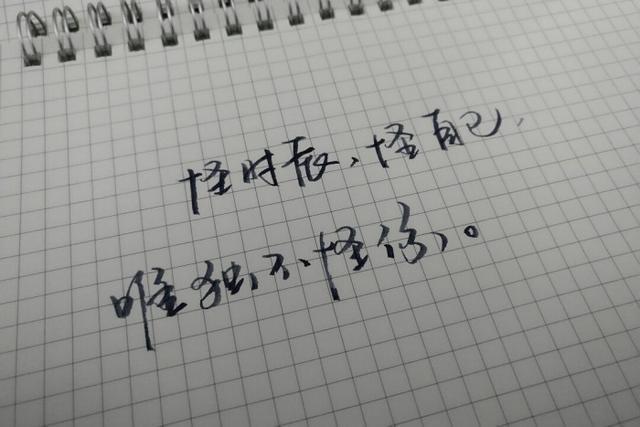 怪时辰、怪自己,
唯独不怪你。